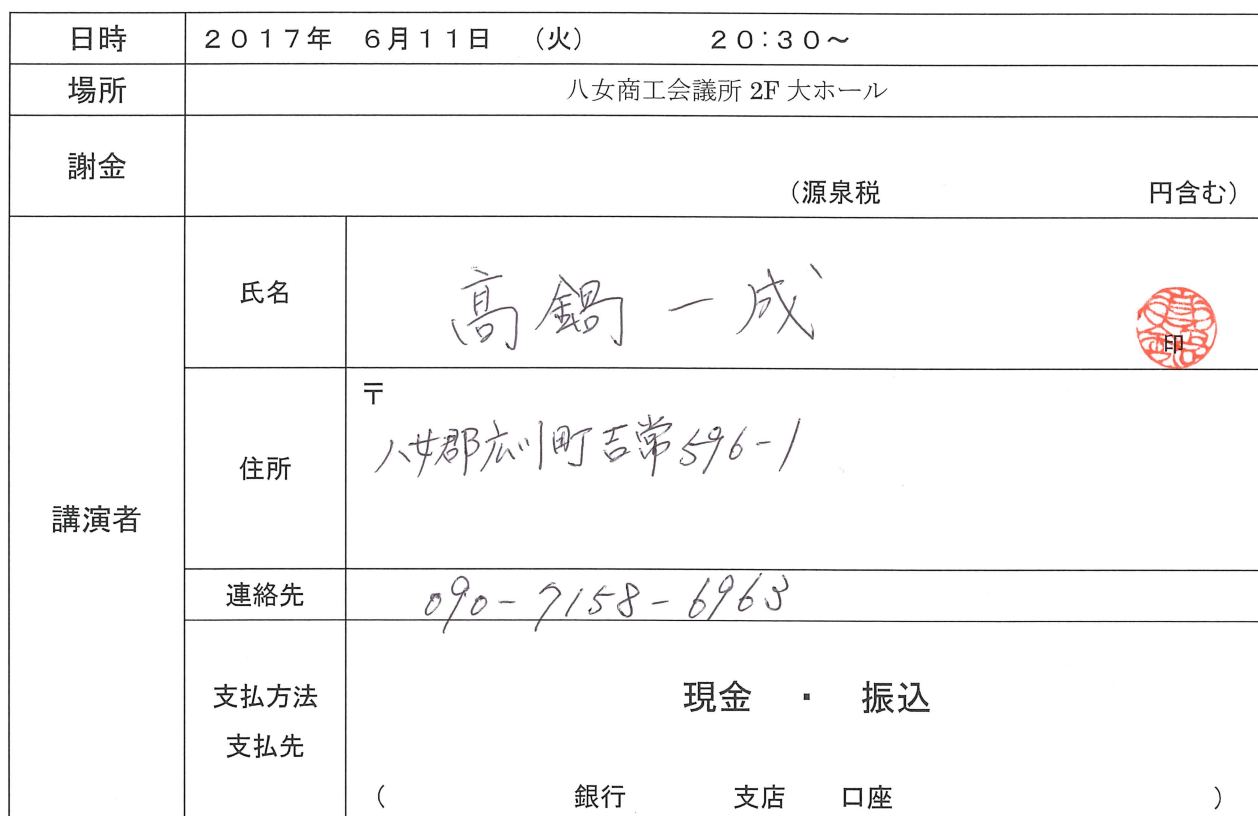 日時 2017年 6月11日 (火) 20:30~
場所 八女商工会議所 2F 大ホール
謝金
(源泉税 円含む)
講演者
氏名 髙鍋一成 印
住所 〒
八女郡広川町吉常596-1
連絡先 090-7158-6963
支払方法 現金 ・ 振込
支払先
( 銀行 支店 口座 )